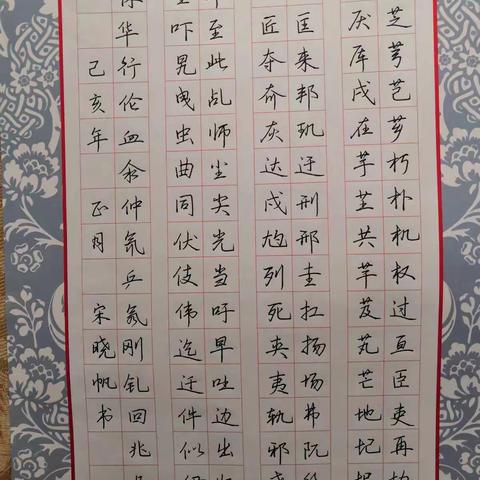 芝芎芑芗朽朴机权过亘臣吏再
厌厍戌在芋芏共芊芨芄芒地圮
匡来邦玑迂刑邢圭扛扬场弗阮
匠夺夼灰达戍尥列死夹夷轨邪
至此乩师尘尖光当吁早吐边出
吓旯曳虫曲同伏伎伟迄迁件似
华行伦血汆仲乒刚钆回兆
己亥年正月宋晓帆书